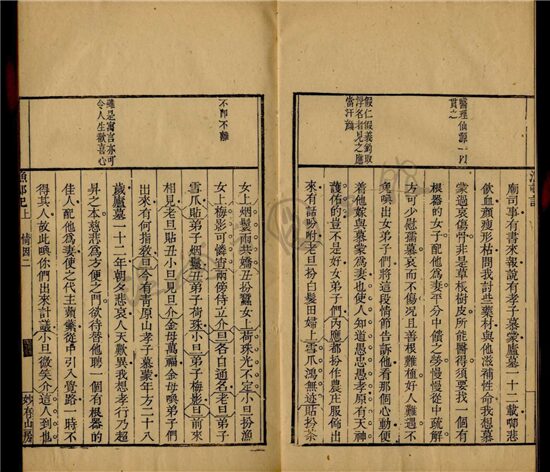 醫理仙源一以
貫之
假仁假義釣取
浮名者見之應
當汗顏
廟司事有書來報說有孝子慕蒙廬墓一十二載啣悲
飲血顏瘦形枯問我討些藥材與他滋補性命我想慕
蒙過哀傷情非是草根樹皮所能醫得須要找一個有
根器的女子配他為妻平分中饋之勞慢慢從中疏解
方可少慰孺慕哀而不傷況且善根難植好人難遇不
免喚出女弟子們將這段情節告訴他看那個心動便
着他嫁與慕蒙為妻也使人知道愚忠愚孝原有天神
護佑的豈不是好女弟子們內應都扮作農莊服飾出
來有話吩咐老旦扮白髮田婦上雪爪鴻無迹貼扮茶
不即不離
雖是寓言亦可
令人生歡喜心
女上烟鬟雨共嬌丑扮蠶女上荷珠光不定小旦扮漁
女上梅影可憐宵兩傍侍立介旦各自通名老旦弟子
雪爪貼弟子烟鬟丑弟子荷珠小旦弟子梅影旦前來
相見老旦貼丑小旦見旦介金母萬福金母喚弟子們
出來有何指教旦今有青原山孝子慕蒙年方二十八
歲廬墓一十二年朝夕悲哀人天歎異我想孝行乃超
昇之本慈悲為方便之門欲待替他聘一個有根器的
佳人配他為妻後之代主蘋蘩從中引入覺路一時不
得其人故此喚你們出來計議小旦微笑介這人到也
漁邨記上
情因二
妙有山房